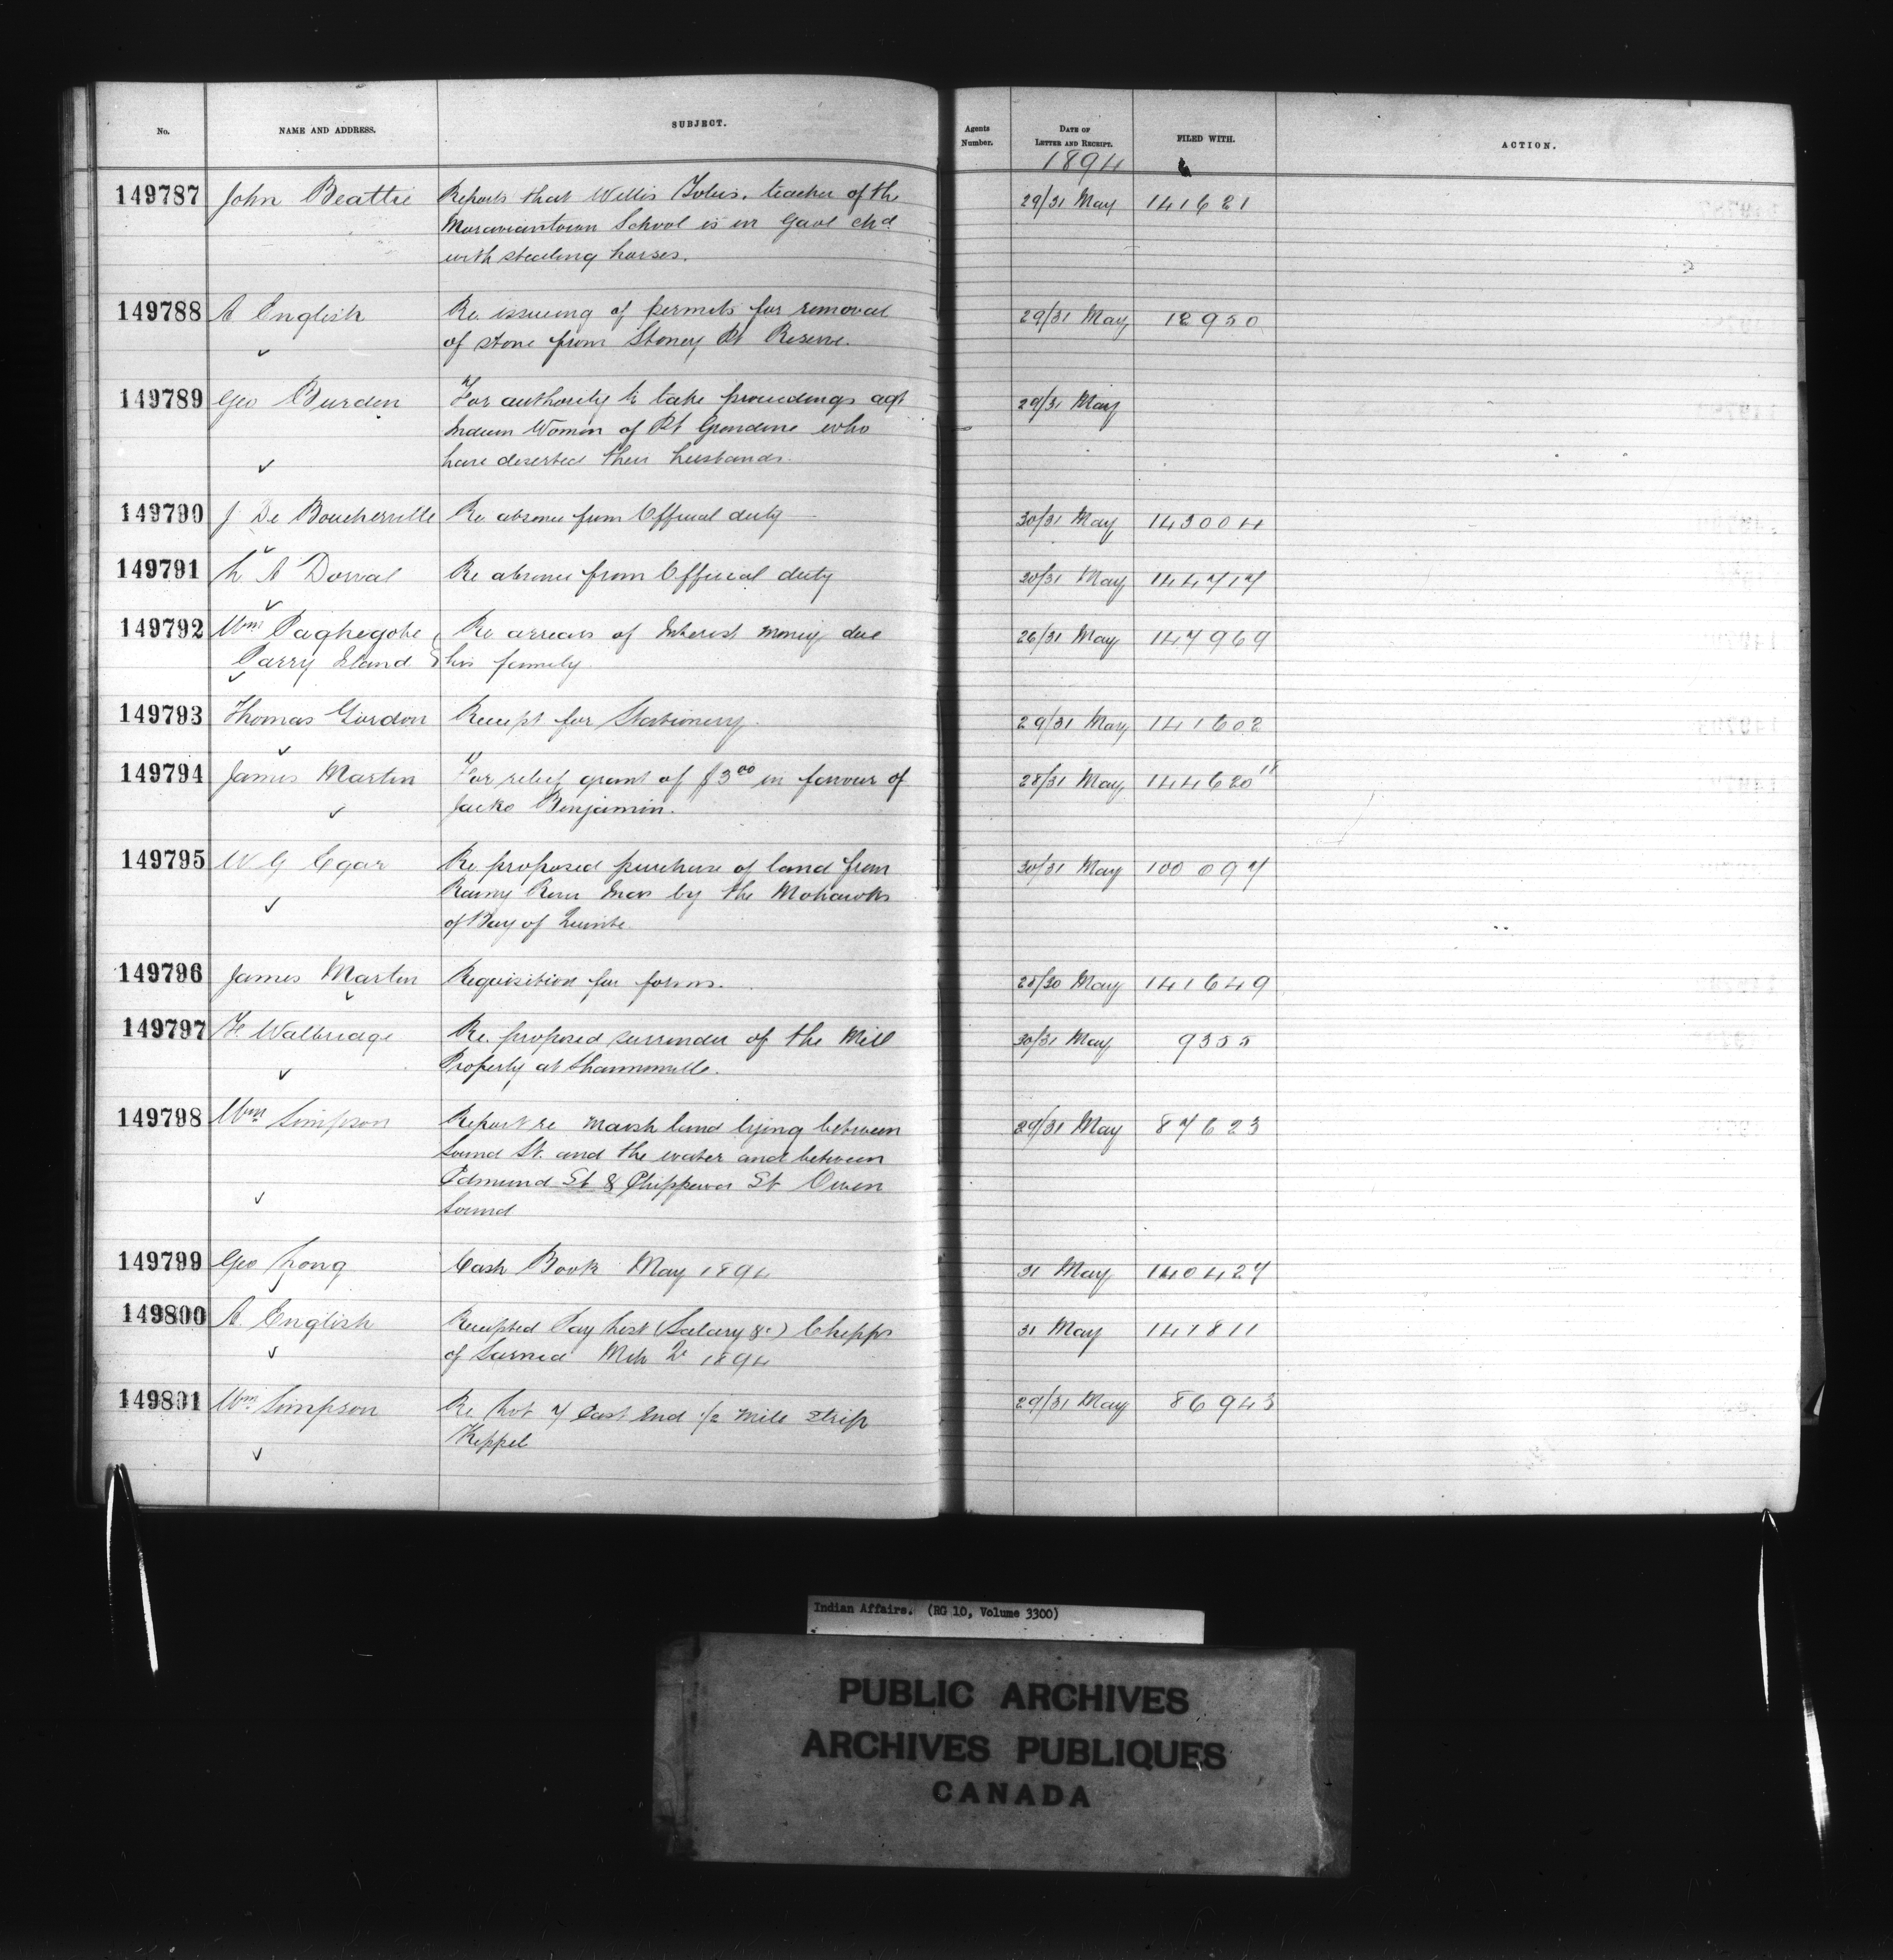 No. NAME AND ADDRESS. SUBJECT. Agents Number. DATE OF LETTER AND RECEIPT. FILED WITH. ACTION.
1894
149787 John Beattie Reports that Willis Tobias, teacher of the 29/31 May 141621
Moraviantown School is in Gaol chd
with stealing horses.
149788 A English Re issuing of permits for removal 29/31 May 12950
of stone from Stoney Pt Reserve.
149789 Geo Burden For authority to take proceedings agt 29/31 May
Indian Women of Pt Grondine who
have deserted their husbands.
149790 J De Boucherville Re absence from Official duty 30/31 May 143004
149791 L A Dorval Re absence from Official duty 30/31 May 144717
149792 Wm Paghegobe Re arrears of Interest money due 26/31 May 147969
Parry Island his family.
149793 Thomas Gordon Receipt for Stationery. 29/31 May 141602
149794 James Martin For relief grant of $3 00 in favour of 28/31 May 144620 11
Jacko Benjamin.
149795 W G Egar Re proposed purchase of land from 30/31 May 100097
Rainy River Inds by the Mohawks
of Bay of Quinte.
149796 James Martin Requisition for forms. 28/30 May 141649
149797 F. Walbridge Re. proposed surrender of the Mill 30/31 May 9355
Property at Shannonville.
149798 Wm Simpson Report re Marsh land lying between 29/31 May 87623
Sound St. and the water and between
Edmund St & Chippewa St Owen
Sound
149799 Geo Long Cash Book May 1894 31 May 140427
149800 A. English Receipted Pay List (Salary &c) Chipps 31 May 147811
of Sarnia Mch Qr 1894
149801 Wm Simpson Re Lot 7 East End 1/2 mile strip 29/31 May 86943
Keppel
Indian Affairs. (RG 10, Volume 3300)
PUBLIC ARCHIVES
ARCHIVES PUBLIQUES
CANADA